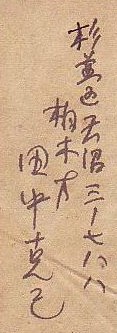 杉並区天沼三ー七八八
柏木方
田中克己